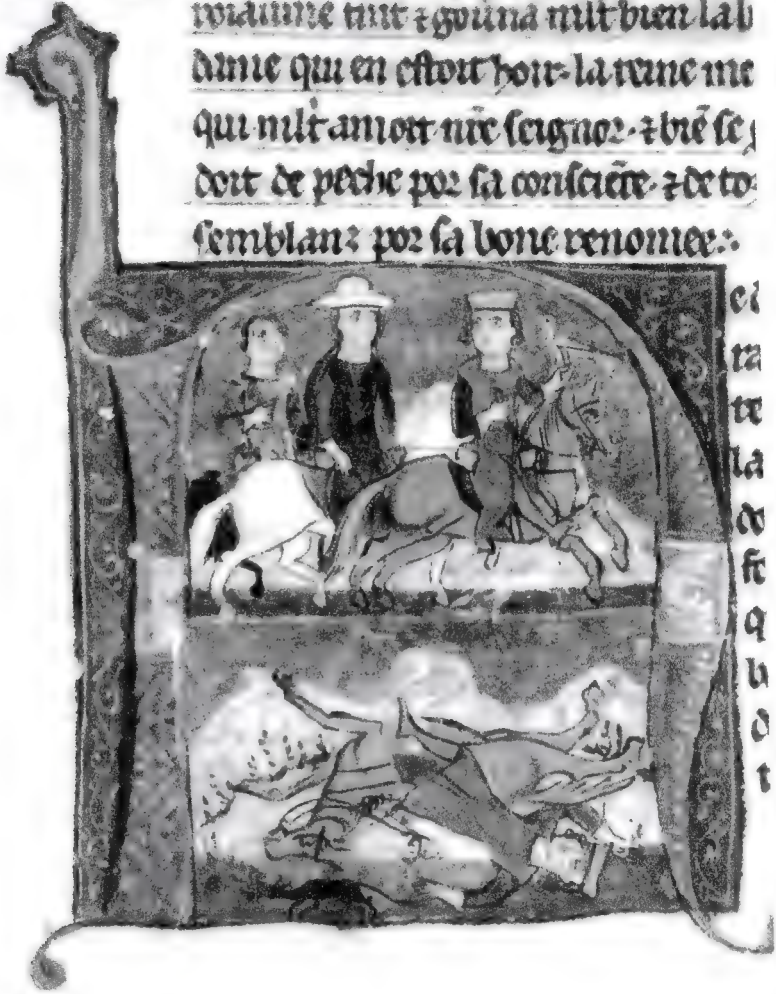 roiaume tint ⁊ gouuna mlt bien la b
dame qui en estoit hoir. la reine me
qui mlt amoit nre seignor. ⁊ bie se
doit de peche por sa consciece. ⁊ de to
semblanz por sa bone renomee.
el
ra
te
la
do
fe
q
b
d
t